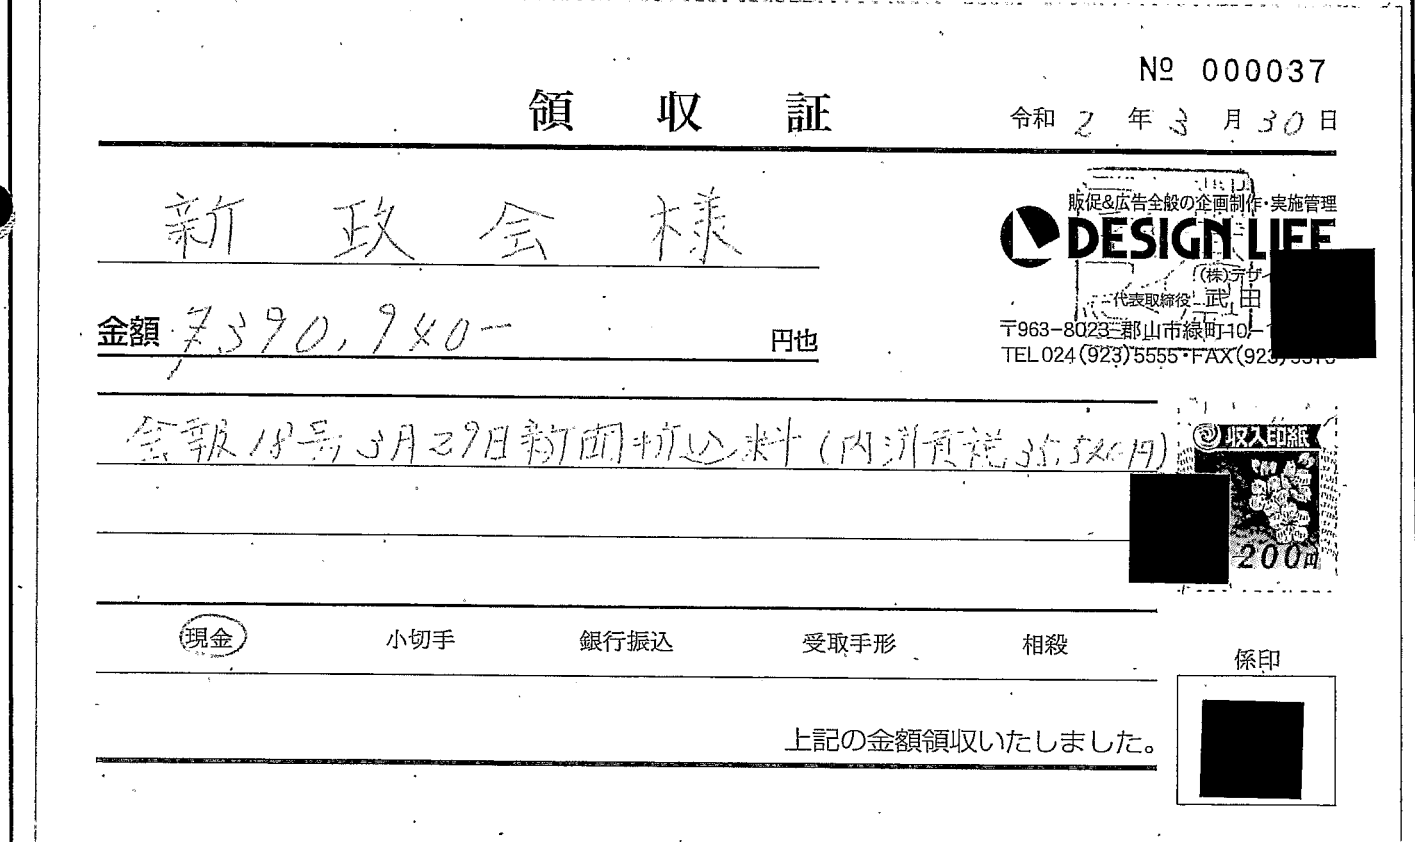 № 000037
領収証
令和 2 年 3 月 30 日
新政会様
販促&広告全般の企画制作・実施管理
DESIGN LIFE
(株)デザ
代表取締役 武田
金額 ¥390,940- 円也
〒963-8023 郡山市緑町10-
TEL 024(923)5555・FAX(923)
会報18号,3月29日新聞折込料(内消費税35,540円)
収入印紙
200円
現金 小切手 銀行振込 受取手形 相殺
係印
上記の金額領収いたしました。